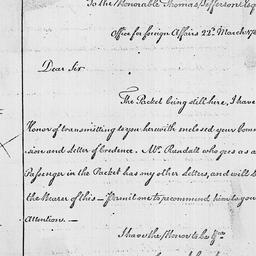 To the Honorable Thomas Jefferson Esq
Office for foreign Affairs 22d. March 178
Dear Sir
The Packet being still here, I have
Honor of transmitting to you herewith enclosed your Comm
sion and Letter of Credence. Mr. Randall who goes as a
Passenger in the Packet has my other Letters, and will b
the Bearer of this — Permit me to recommend him to your
Attention. —
I have the Honor to be &c